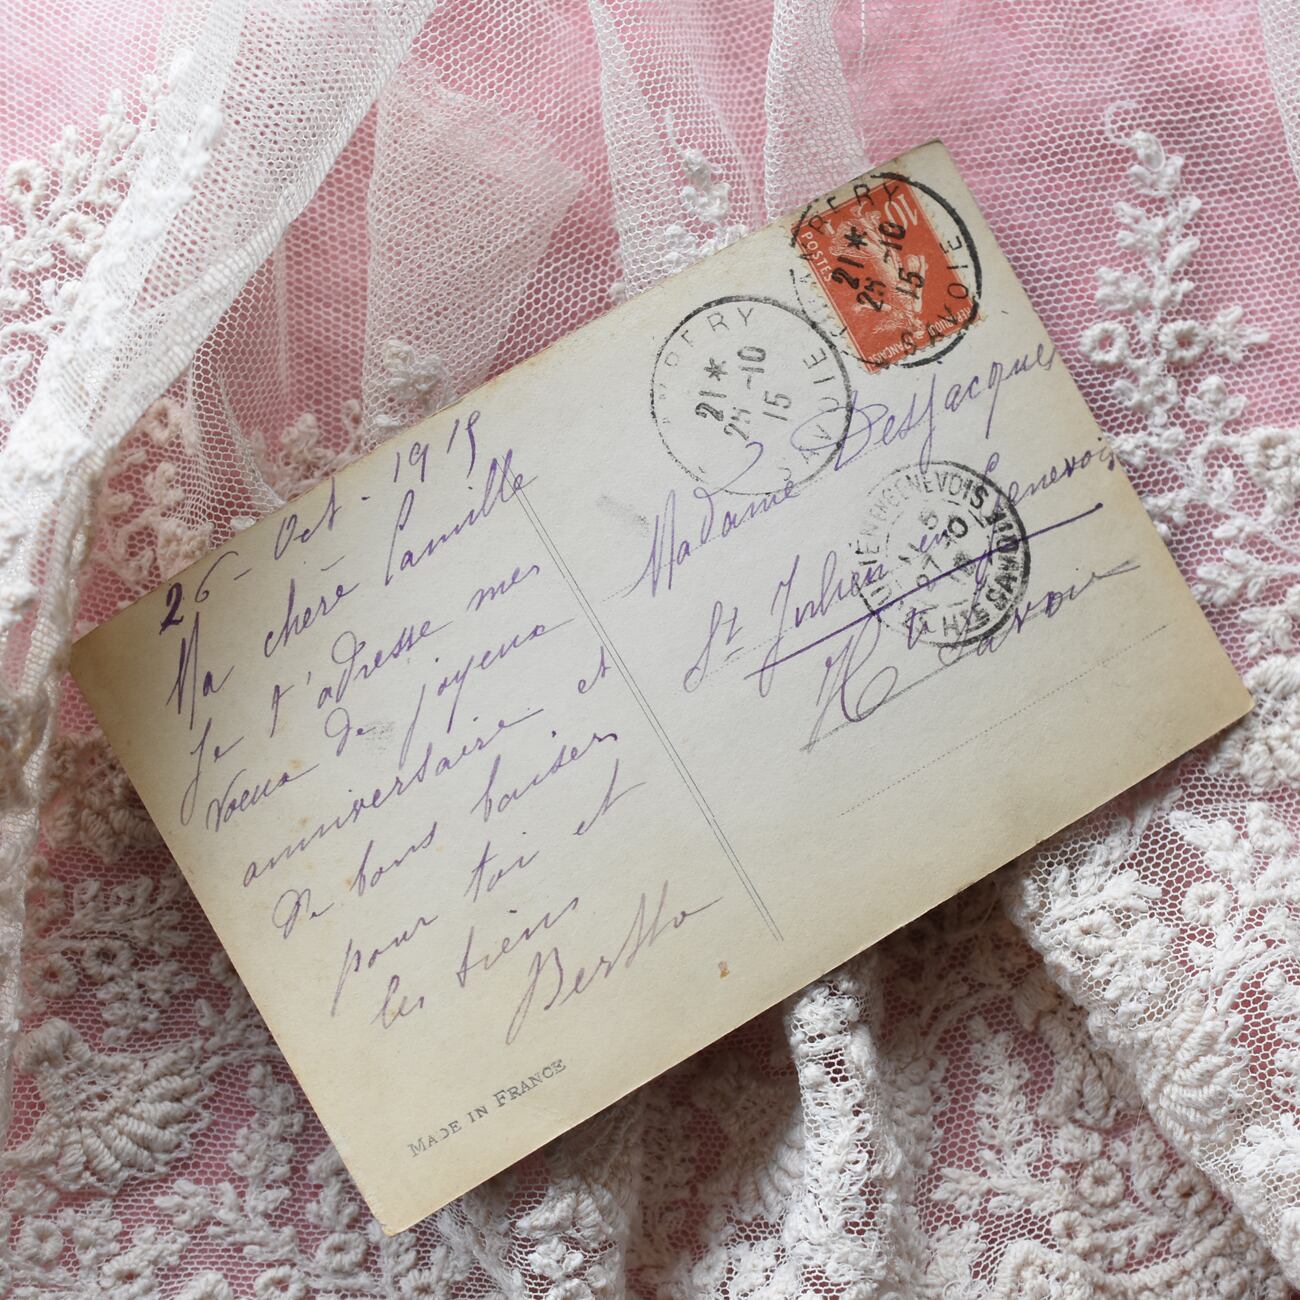 26 - Oct - 1915
Ma chère Camille
Je t'adresse mes
voeux de joyeux
anniversaire et
de bons baisers
pour toi et
les tiens
Bertha
MADE IN FRANCE
10
POSTES
BERY
21*
25-10
15
SAVOIE
BERY
21*
25-10
15
SAVOIE
Madame Desjacques
St Julien en Genevois
Hte Savoie
JULIEN EN GENEVOIS
HTE SAVOIE